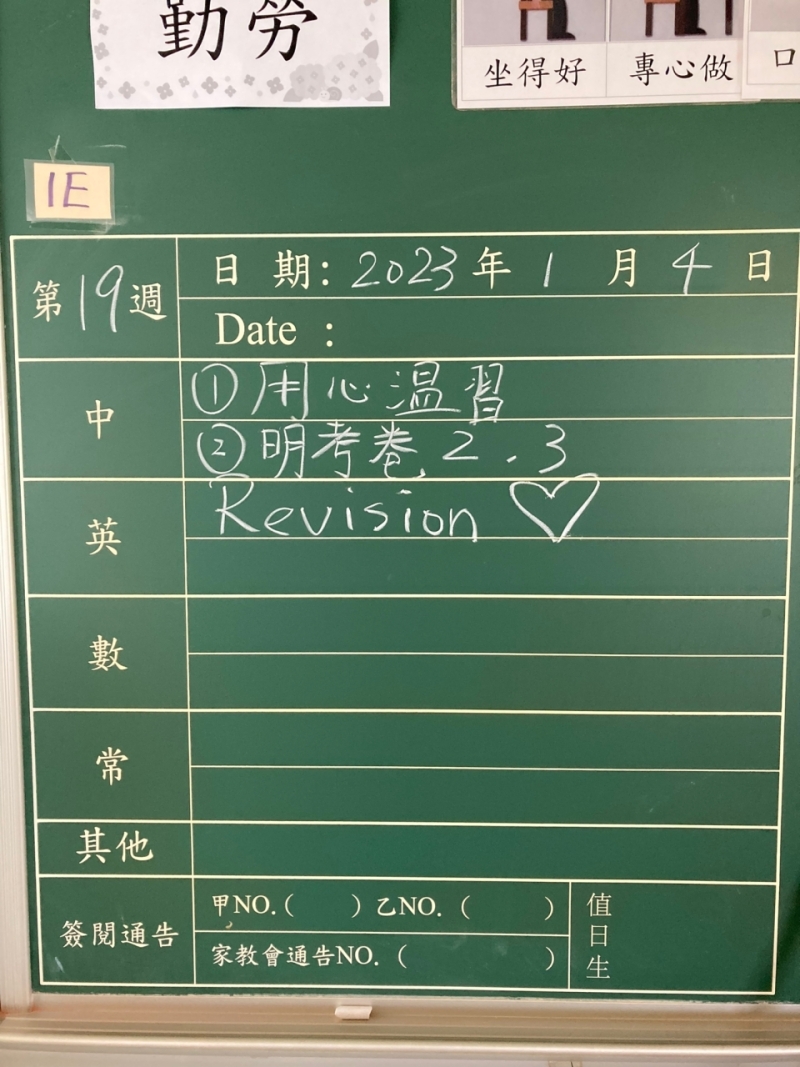 勤勞
坐得好
專心做
口
1E
第19週
日 期: 2023年 1 月 4 日
Date :
中
①用心溫習
②明考卷2.3
英
Revision ♡
數
常
其他
簽閱通告
甲NO.( ) 乙NO. ( )
家教會通告NO. ( )
值日生